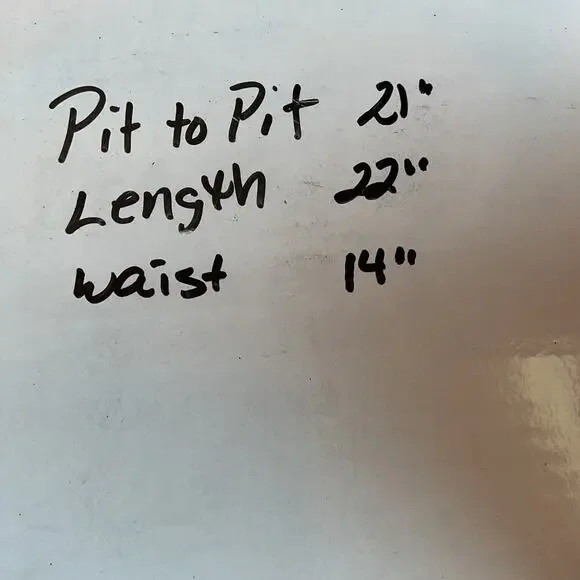 Pit to Pit 21"
Length 22"
waist 14"